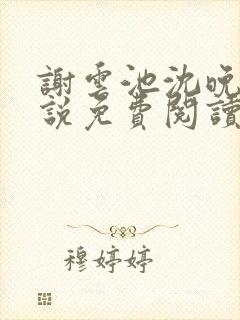 謝雲池沈晚
說免費閱讀
穆婷婷